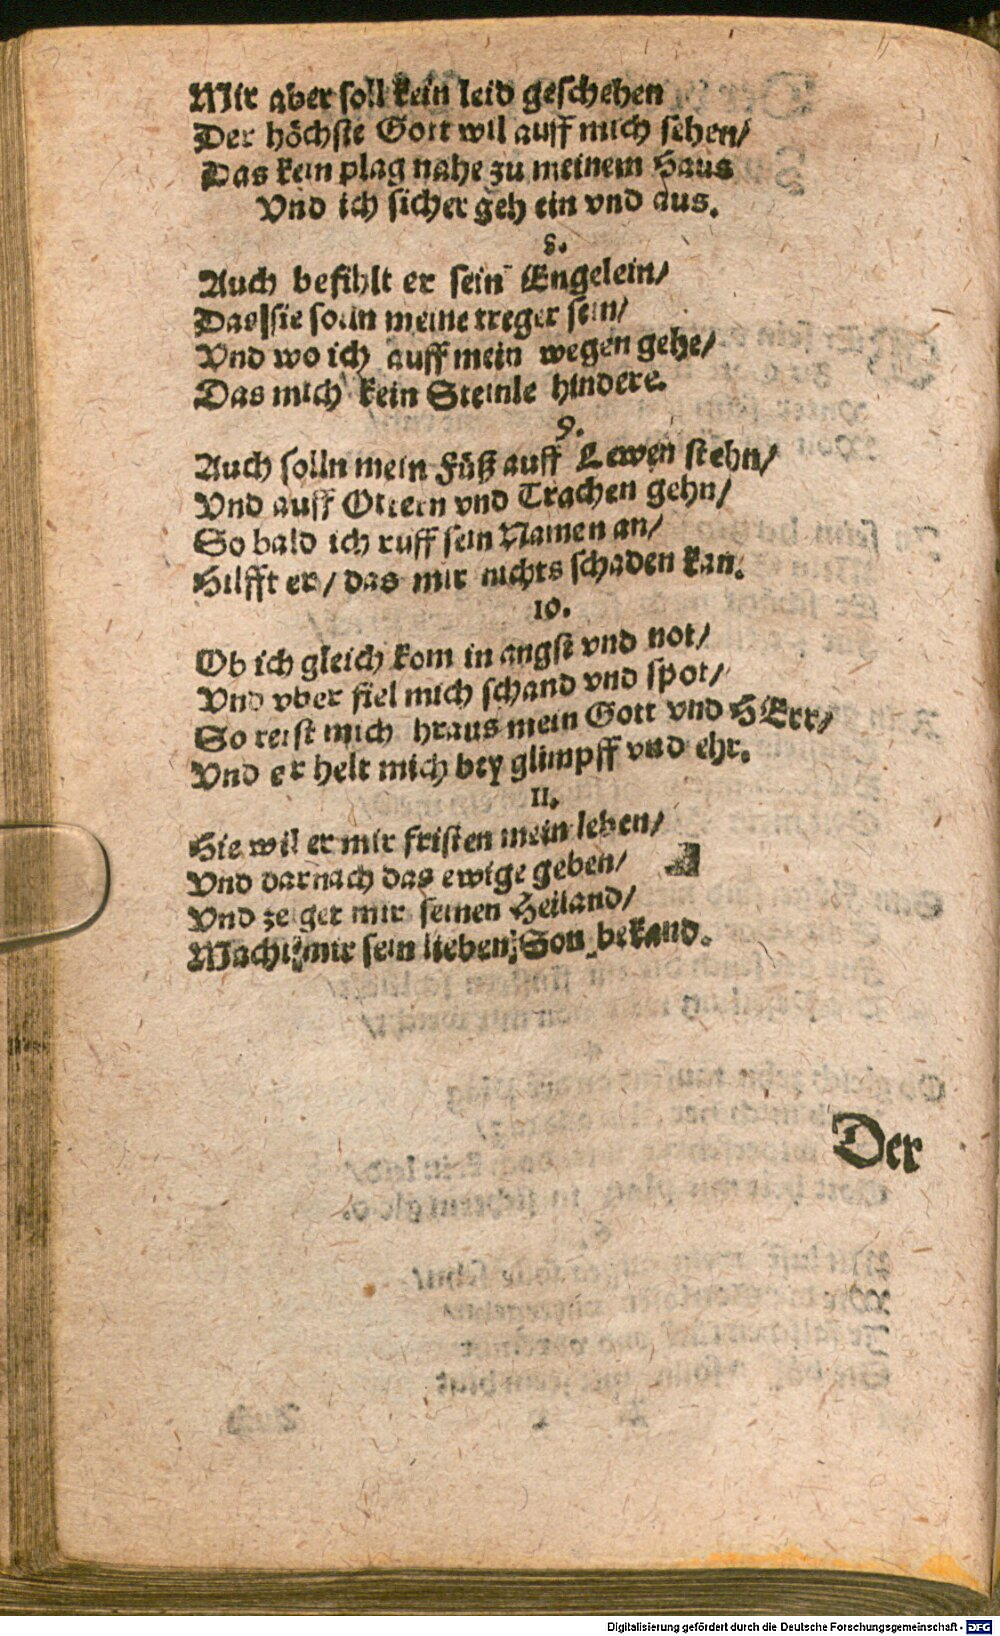 Mir aber soll kein leid geschehen
Der höchste Gott wil auff mich sehen/
Das kein plag nahe zu meinem Haus
Vnd ich sicher geh ein vnd aus.
8.
Auch befihlt er sein Engelein/
Das sie solln meine treger sein/
Vnd wo ich auff mein wegen gehe/
Das mich kein Steinle hindere.
9.
Auch solln mein Füß auff Lewen stehn/
Vnd auff Ottern vnd Trachen gehn/
So bald ich ruff sein Namen an/
Hilfft er/ das mir nichts schaden kan.
10.
Ob ich gleich kom in angst vnd not/
Vnd vber fiel mich schand vnd spot/
So reist mich hraus mein Gott vnd HErr/
Vnd er helt mich bey glimpff vnd ehr.
11.
Hie wil er mir fristen mein leben/
Vnd darnach das ewige geben/
Vnd zeiget mir seinen Heiland/
Macht mir sein lieben Son bekand.
Der
Digitalisierung gefördert durch die Deutsche Forschungsgemeinschaft - DFG